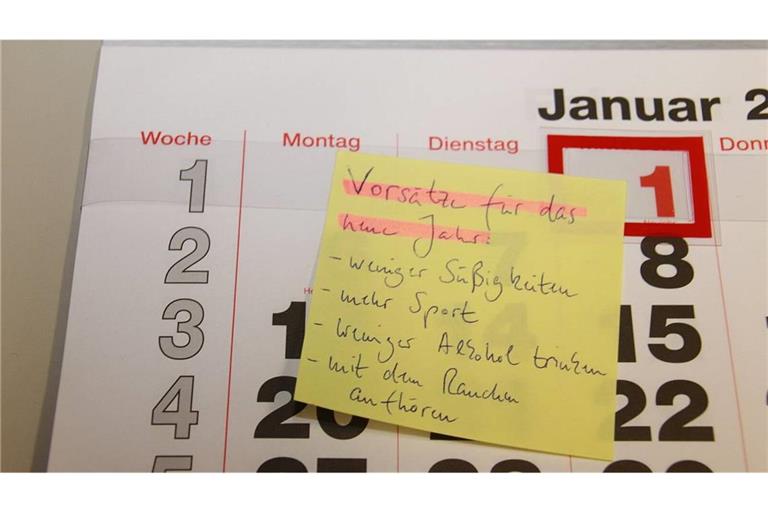 Januar 2
Woche Montag Dienstag Donn
1 1
2 8
3 1 15
4 20 22
Vorsätze für das
neue Jahr:
- weniger Süßigkeiten
- mehr Sport
- weniger Alkohol trinken
- mit dem Rauchen
aufhören